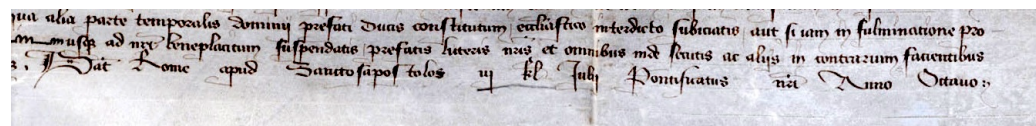 qua alia parte temporalis dominij prefati Ducis constitutum eccl̄iastico interdicto subiciatis aut si iam in fulminatione pro
musq; ad nr̄m beneplacitum suspendatis prefatis literis nr̄is et omnibus inde secutis ac alijs in contrarium facientibus
Dat̄ Rome apud Sanctosapostolos iij kl̄ Julij Pontificatus nr̄i Anno Octauo